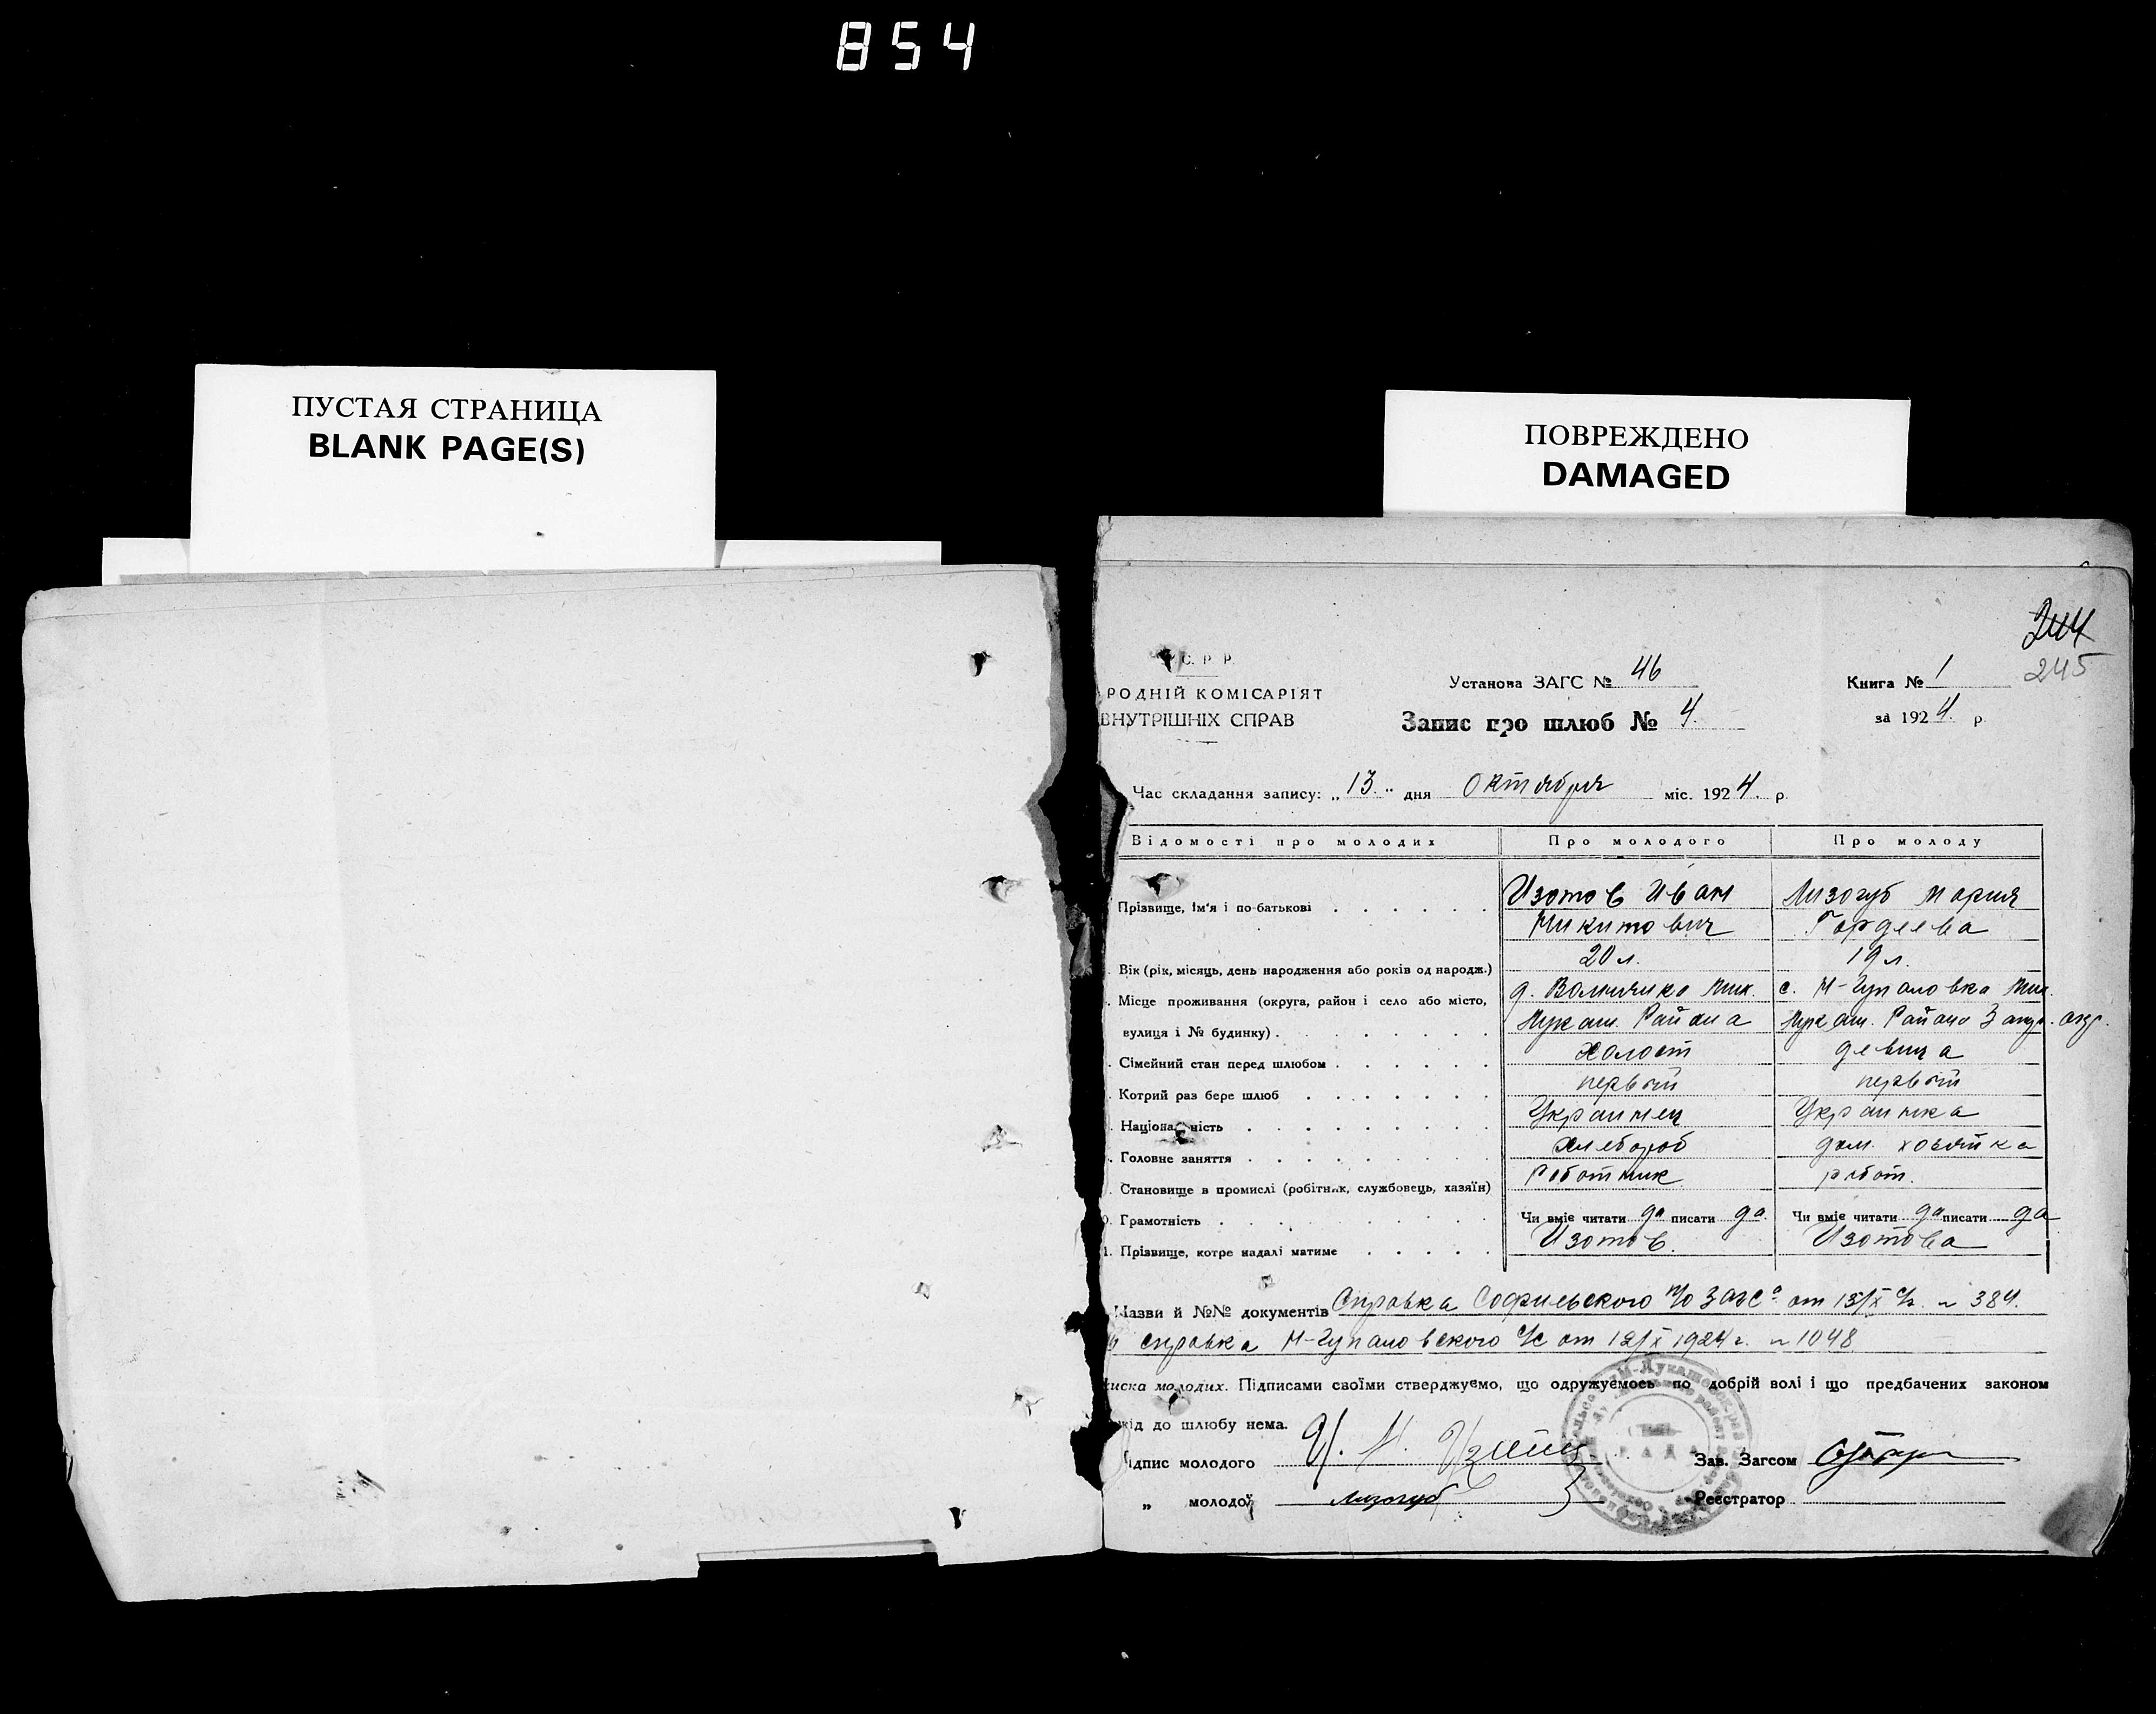 854
ПУСТАЯ СТРАНИЦА
BLANK PAGE(S)
ПОВРЕЖДЕНО
DAMAGED
244
245
С. Р. Р.
РОДНІЙ КОМІСАРІЯТ
ВНУТРІШНІХ СПРАВ
Установа ЗАГС № 46
Запис про шлюб № 4.
Книга № 1
за 1924. р.
Час складання запису: „13.“ дня Октября міс. 1924. р.
Відомості про молодих Про молодого Про молоду
Прізвище, ім'я і по-батькові Изотов Иван Лизогуб Мария
Никитович Гордеева
Вік (рік, місяць, день народження або років од народж.) 20 л. 19 л.
Місце проживання (округа, район і село або місто, д. с. Н-Гупаловка
вулиця і № будинку) Района Запор. окр.
Сімейний стан перед шлюбом холост девица
Котрий раз бере шлюб первый первый
Націона ність Украинец Украинка
Головне заняття хлебороб дом. хозяйка
Становище в промислі (робітник, службовець, хазяїн) Работник работ.
Грамотність Чи вміє читати да писати да Чи вміє читати да писати да
1. Прізвище, котре надалі матиме Изотов. Изотова
Назви й №№ документів Справка Софиевского ЗАГСа от 13/X № 384.
справка Н-Гупаловского с/с от 12/X 1924 г. № 1048
иска молодих. Підписами своїми стверджуємо, що одружуємось по добрій волі і що предбачених законом
кід до шлюбу нема.
ідпис молодого И. Н. Зав. Загсом
„ молодої Лизогуб Реєстратор
РАДА